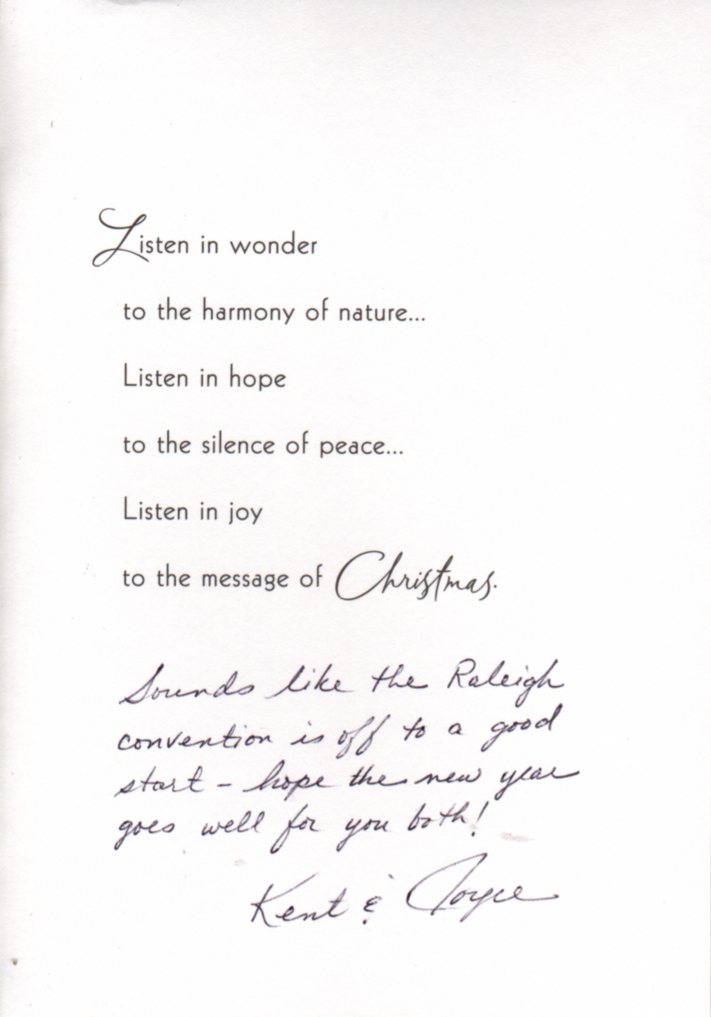 Listen in wonder
to the harmony of nature...
Listen in hope
to the silence of peace...
Listen in joy
to the message of Christmas.
Sounds like the Raleigh
convention is off to a good
start - hope the new year
goes well for you both!
Kent & Joyce